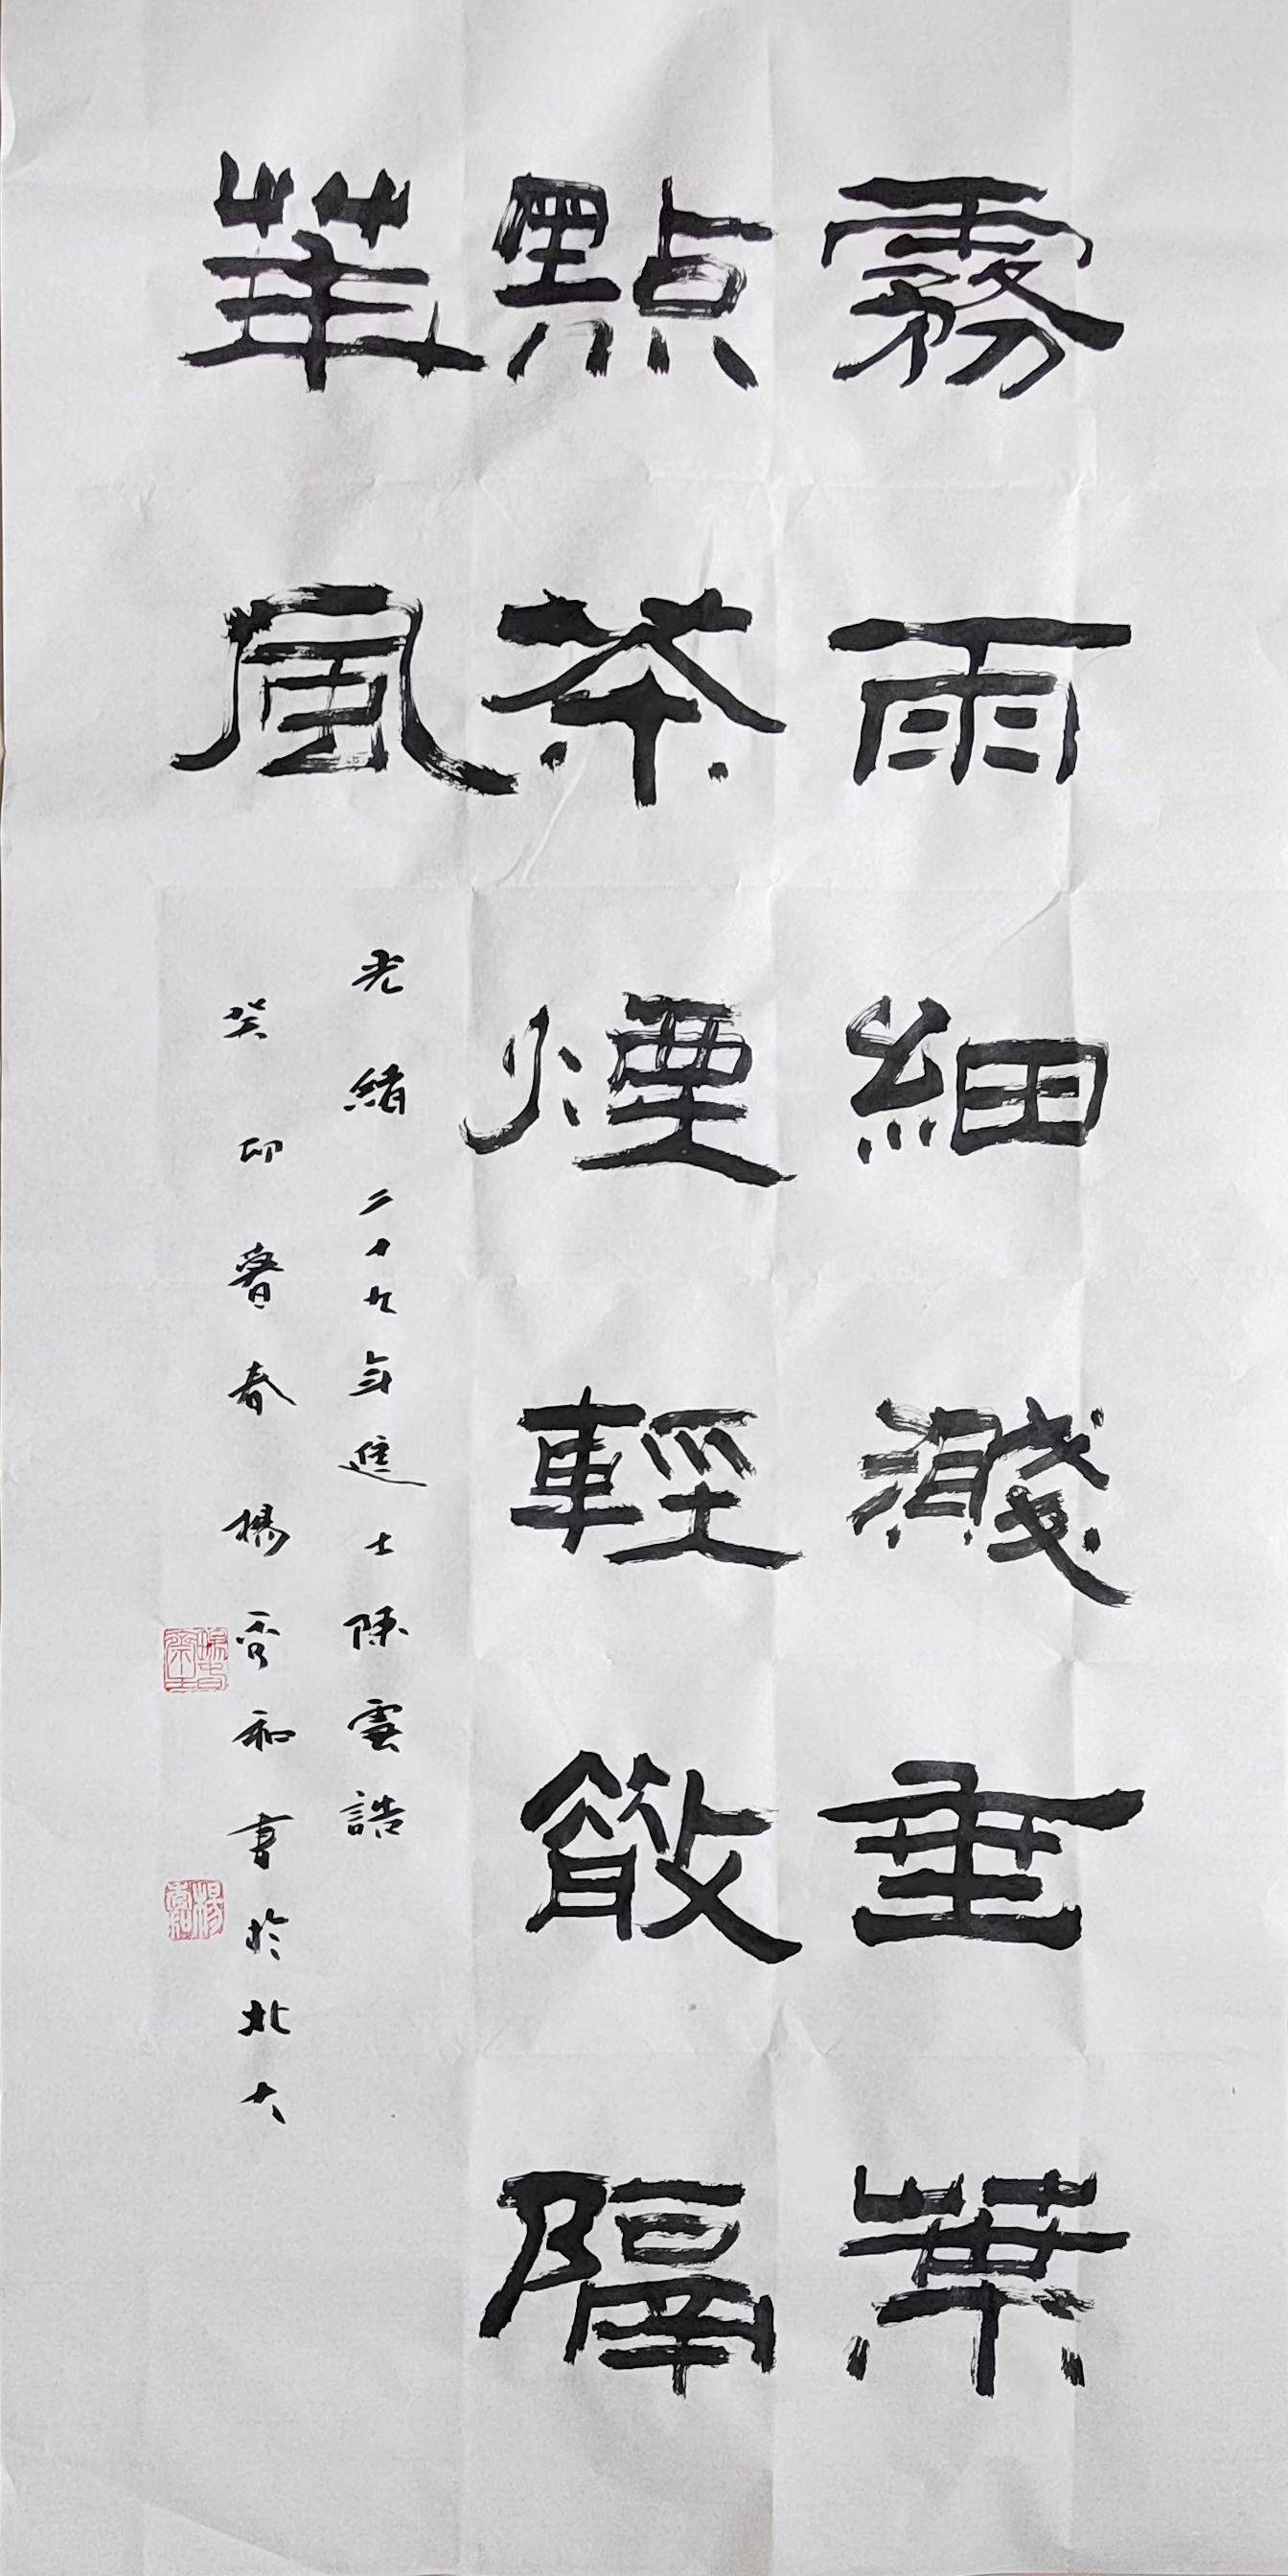 霧雨細濺垂葉
點茶煙輕散隔
華風
光緒二十九年進士陳雲誥
癸卯暮春楊秀和書於北大